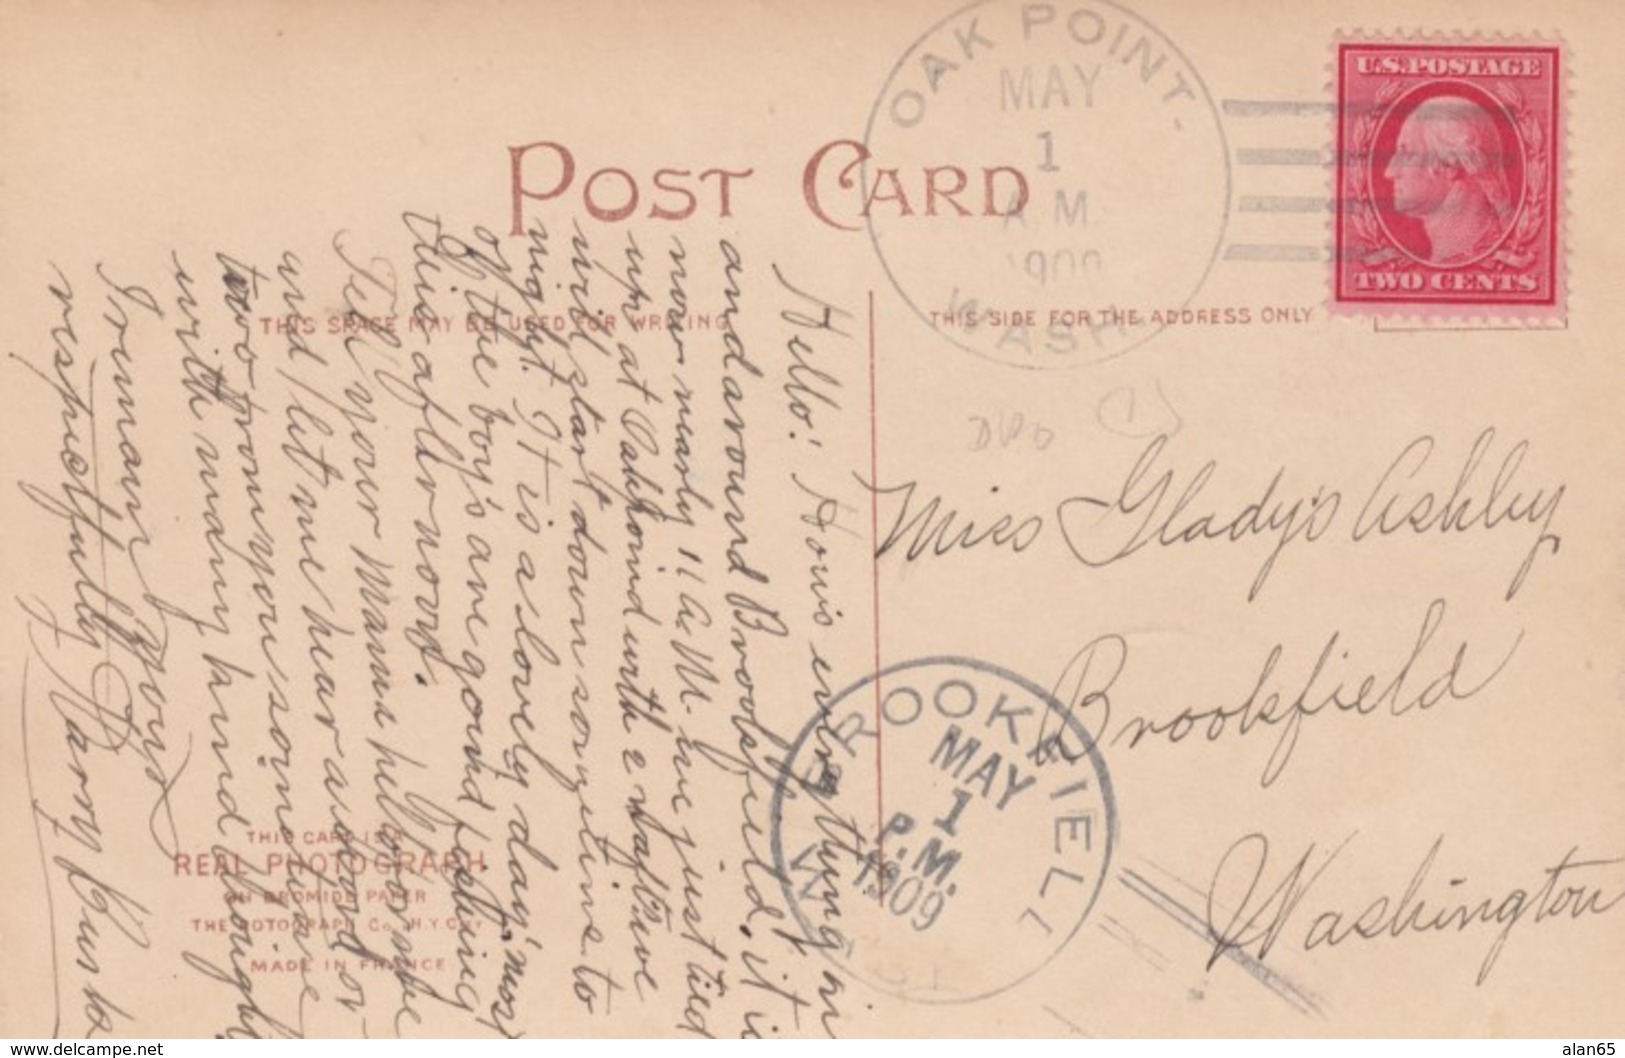 POST CARD
OAK POINT.
MAY
1
A.M.
1909
WASH.
U.S. POSTAGE
TWO CENTS
THIS SPACE MAY BE USED FOR WRITING
THIS SIDE FOR THE ADDRESS ONLY
Miss Gladys Ashley
Brookfield
Washington
BROOKFIELD
MAY
1
P.M.
1909
WASH.
Hello! How's everything in
and around Brookfield. it is
now nearly 11 A.M. we just tied
up at Oak Point with 2 rafts we
will start down sometime to
night. It is a lovely day. most
of the boy's are going fishing
this afternoon.
Tell your Mama hello for me
and let me hear a word or
two from you some time
with many kind thought
I remain yours
respectfully Harry
THIS CARD IS A
REAL PHOTOGRAPH
ON BROMIDE PAPER
THE ROTOGRAPH Co., N.Y. CITY
MADE IN FRANCE
www.delcampe.net
alan65